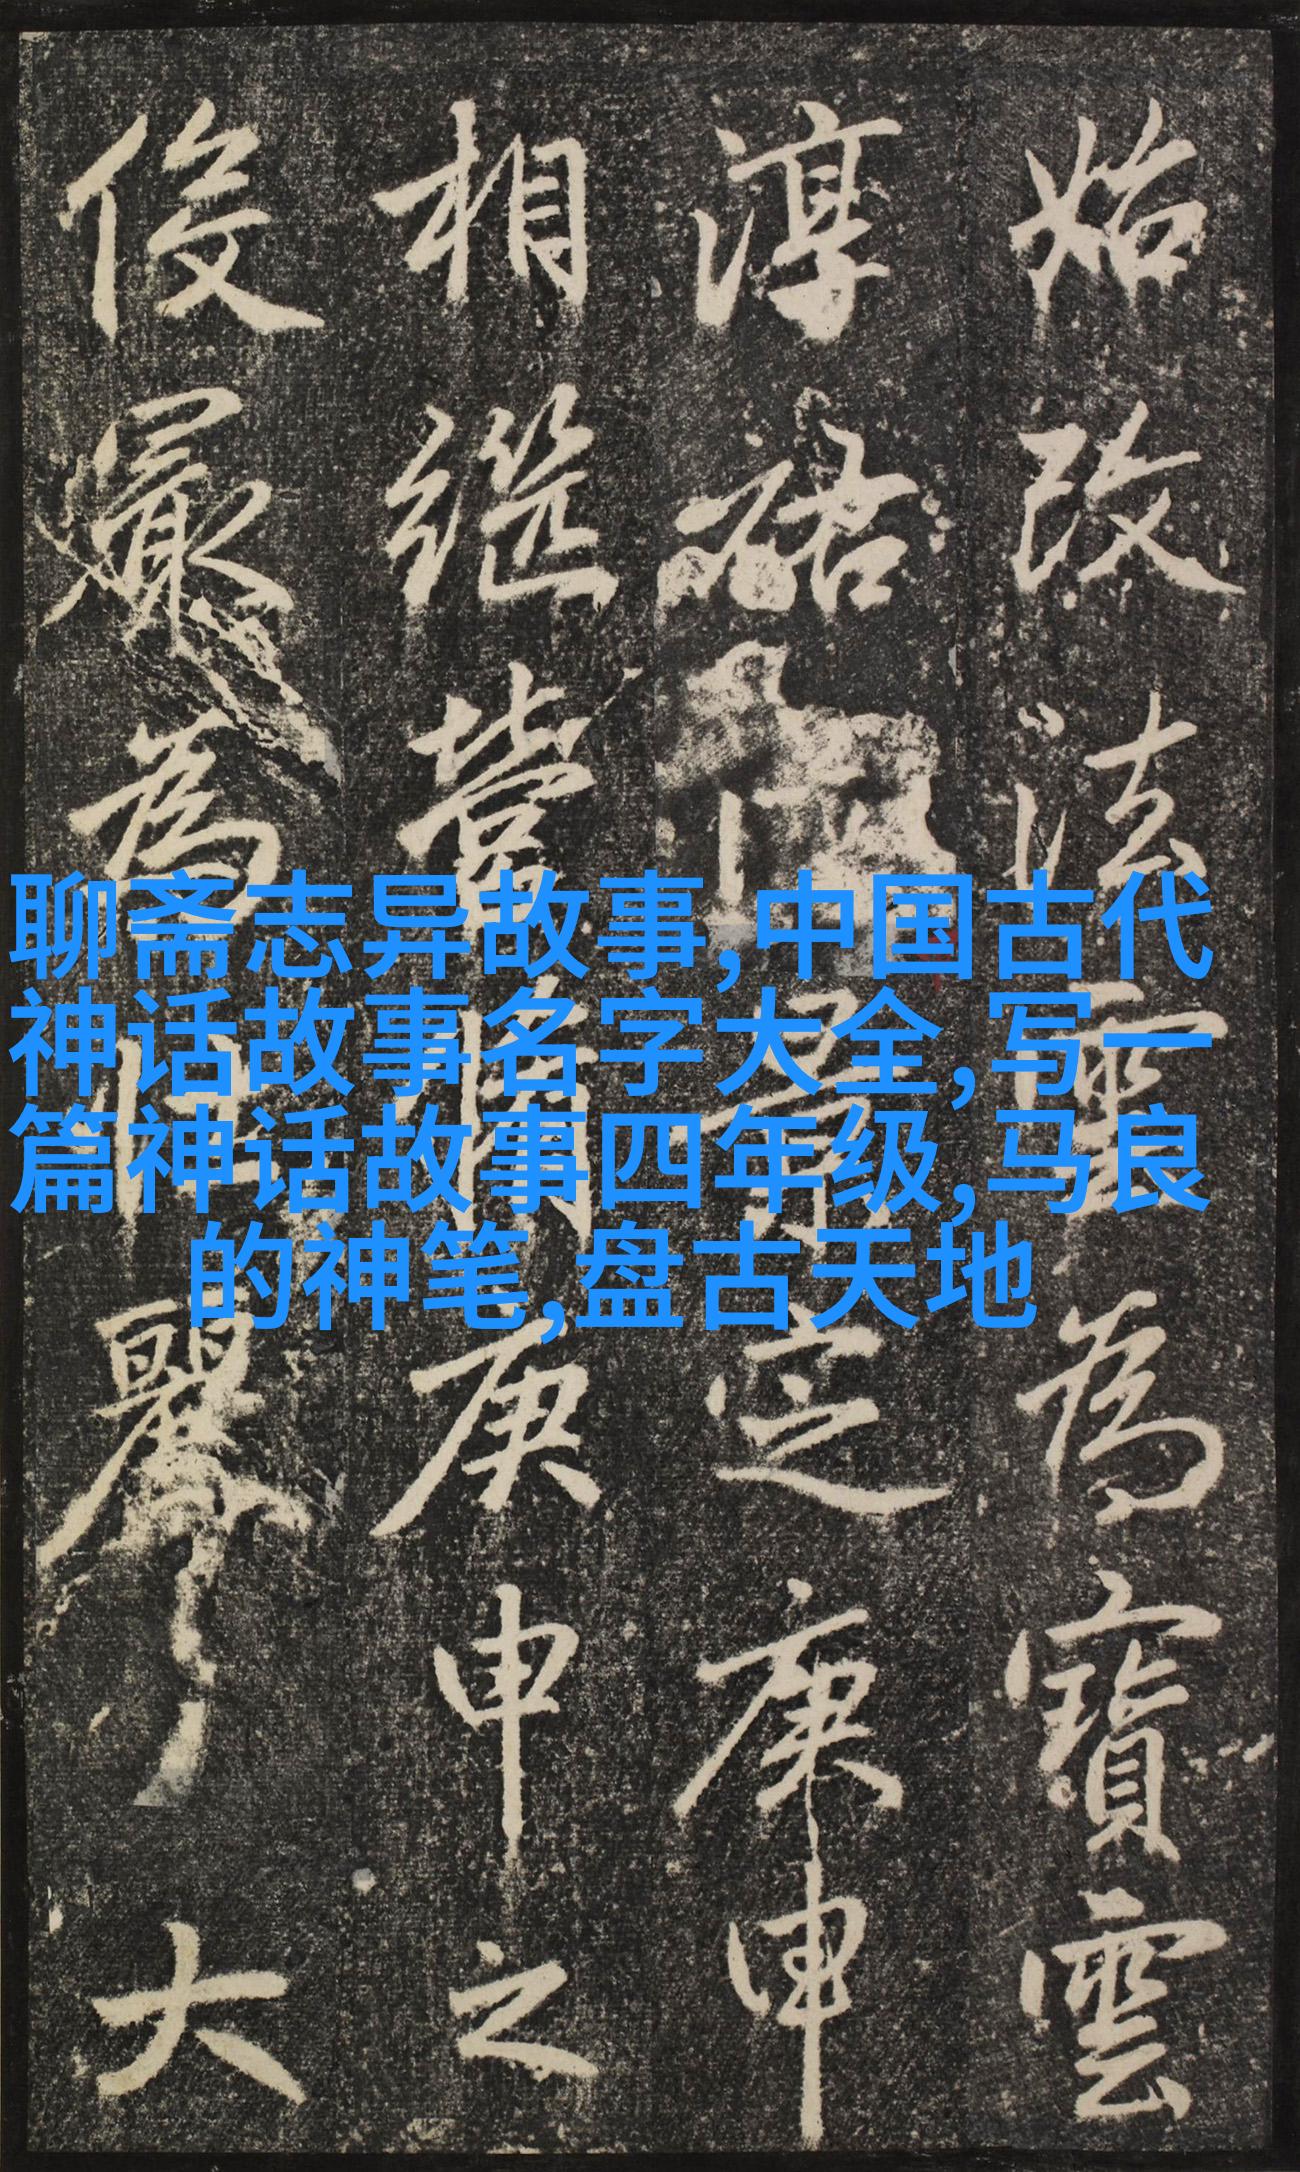 始改法雲為寶雲
淳祐景定庚申
相继嘗庚申之
俊最為麗大
聊斋志异故事,中国古代
神话故事名字大全,写一
篇神话故事四年级,马良
的神笔,盘古天地